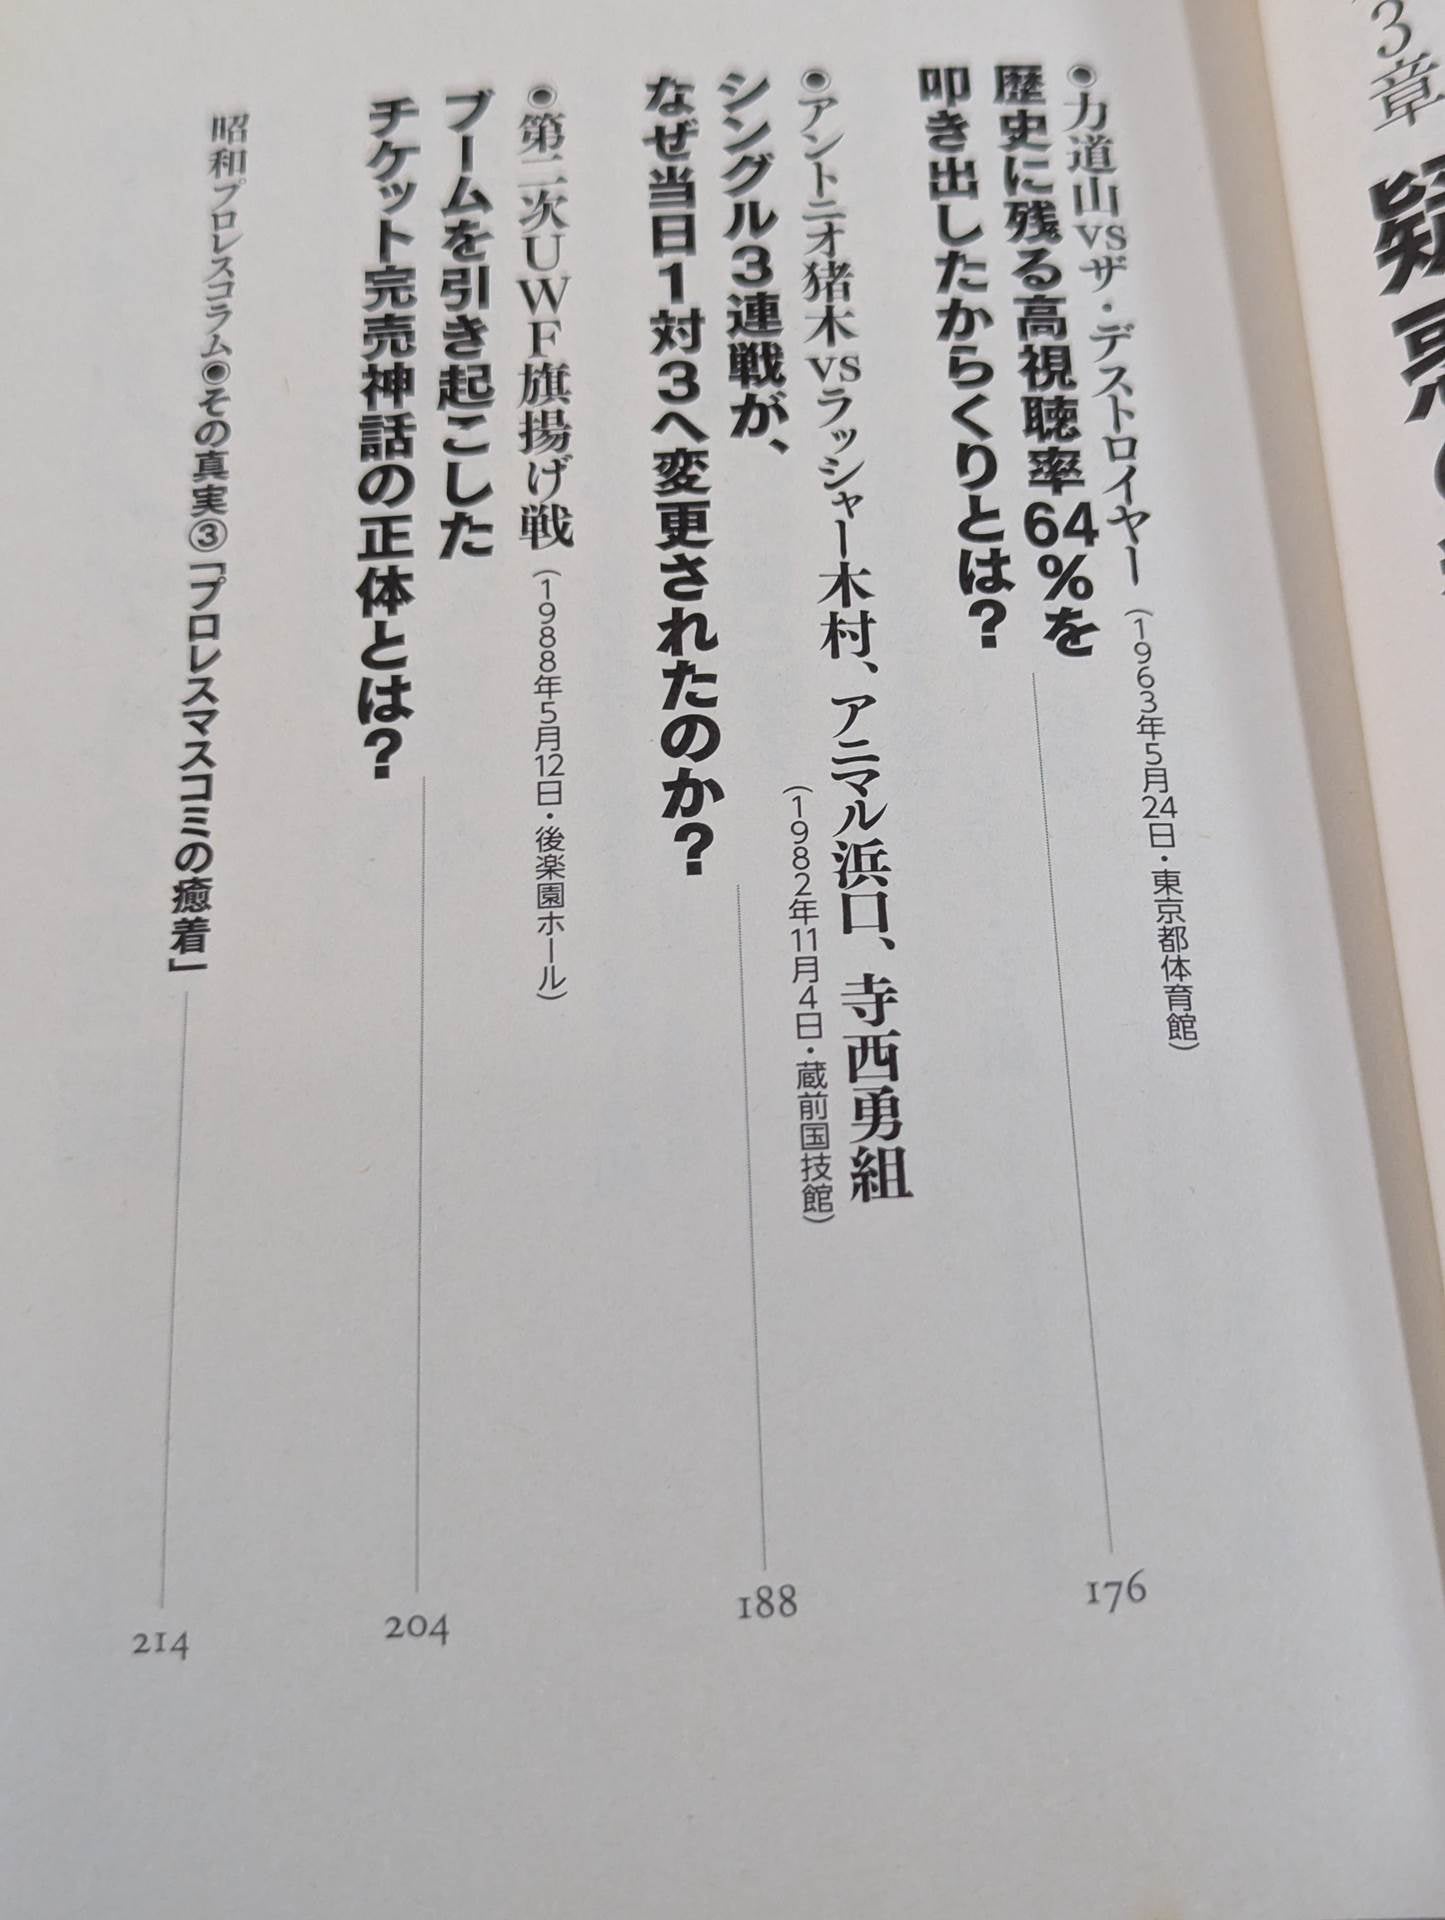 3章
●力道山vsザ・デストロイヤー(1963年5月24日・東京都体育館)
歴史に残る高視聴率64%を
叩き出したからくりとは?
176
●アントニオ猪木vsラッシャー木村、アニマル浜口、寺西勇組
(1982年11月4日・蔵前国技館)
シングル3連戦が、
なぜ当日1対3へ変更されたのか?
188
●第二次UWF旗揚げ戦(1988年5月12日・後楽園ホール)
ブームを引き起こした
チケット完売神話の正体とは?
204
昭和プロレスコラム●その真実③「プロレスマスコミの癒着」
214